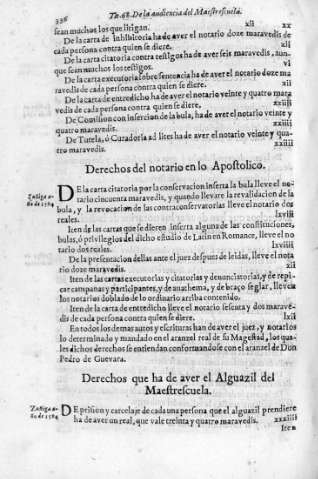 336 Tit.68. De la audiencia del Maestrescuela.
sean muchos los que litigan. xii xx
De la carta de inhibitoria ha de aver el notario doze maravedis de
cada persona contra quien se diere. xii
De la carta citatoria ha de aver seis maravedis, aun-
que sean muchos los testigos. vi
De la carta executoria sobre sentencia ha de aver el notario doze ma
ravedis de cada persona contra quien se diere. xii
De la carta de entredicho ha de aver el notario veinte y quatro mara
vedis de cada persona contra quien se diere, xxiiii
De Comision con insercion de la bula, ha de aver el notario veinte y
quatro maravedis. xxiiii
De Tutela, ò Curaduria ad lites ha de aver el notario veinte y qua-
tro maravedis. xxiiii
Derechos del notario en lo Apostolico.
Zuñiga a-
ño de 1584
DE la carta citatoria por la conservacion inserta la bula lleve el no-
tario cincuenta maravedis, y quando llevare la revalidacion de la
bula, y la revocacion de las contraconservatorias lleve el notario dos
reales. lxviii
Iten de las cartas que se dieren inserta alguna de las constituciones,
bulas, ò privilegios del dicho estudio de Latin en Romance, lleve el no
tario dos reales. lxviii
De la presentacion dellas ante el juez despues de leidas, lleve el nota
rio doze maravedis. xii
Iten de las cartas executorias y citatorias y denunciatorias, y de repi-
car campanas y participantes, y de anathema, y de braço seglar, lleven
los notarios doblado de lo ordinario arriba contenido.
Iten de la carta de entredicho lleve el notario sesenta y dos marave-
dis de cada persona contra quien se diere. lxii
En todos los demas autos y escrituras han de aver el juez, y notarios
lo determinado y mandado en el aranzel real de su Magestad, los qua-
les dichos derechos se entiendan conformandose con el aranzel de Don
Pedro de Guevara.
Derechos que ha de aver el Alguazil del
Maestrescuela.
Zuñiga a-
ño de 1584
DE prision y carcelaje de cada una persona que el alguazil prendiere
ha de aver un real, que vale treinta y quatro maravedis. xxxiiii
Iten